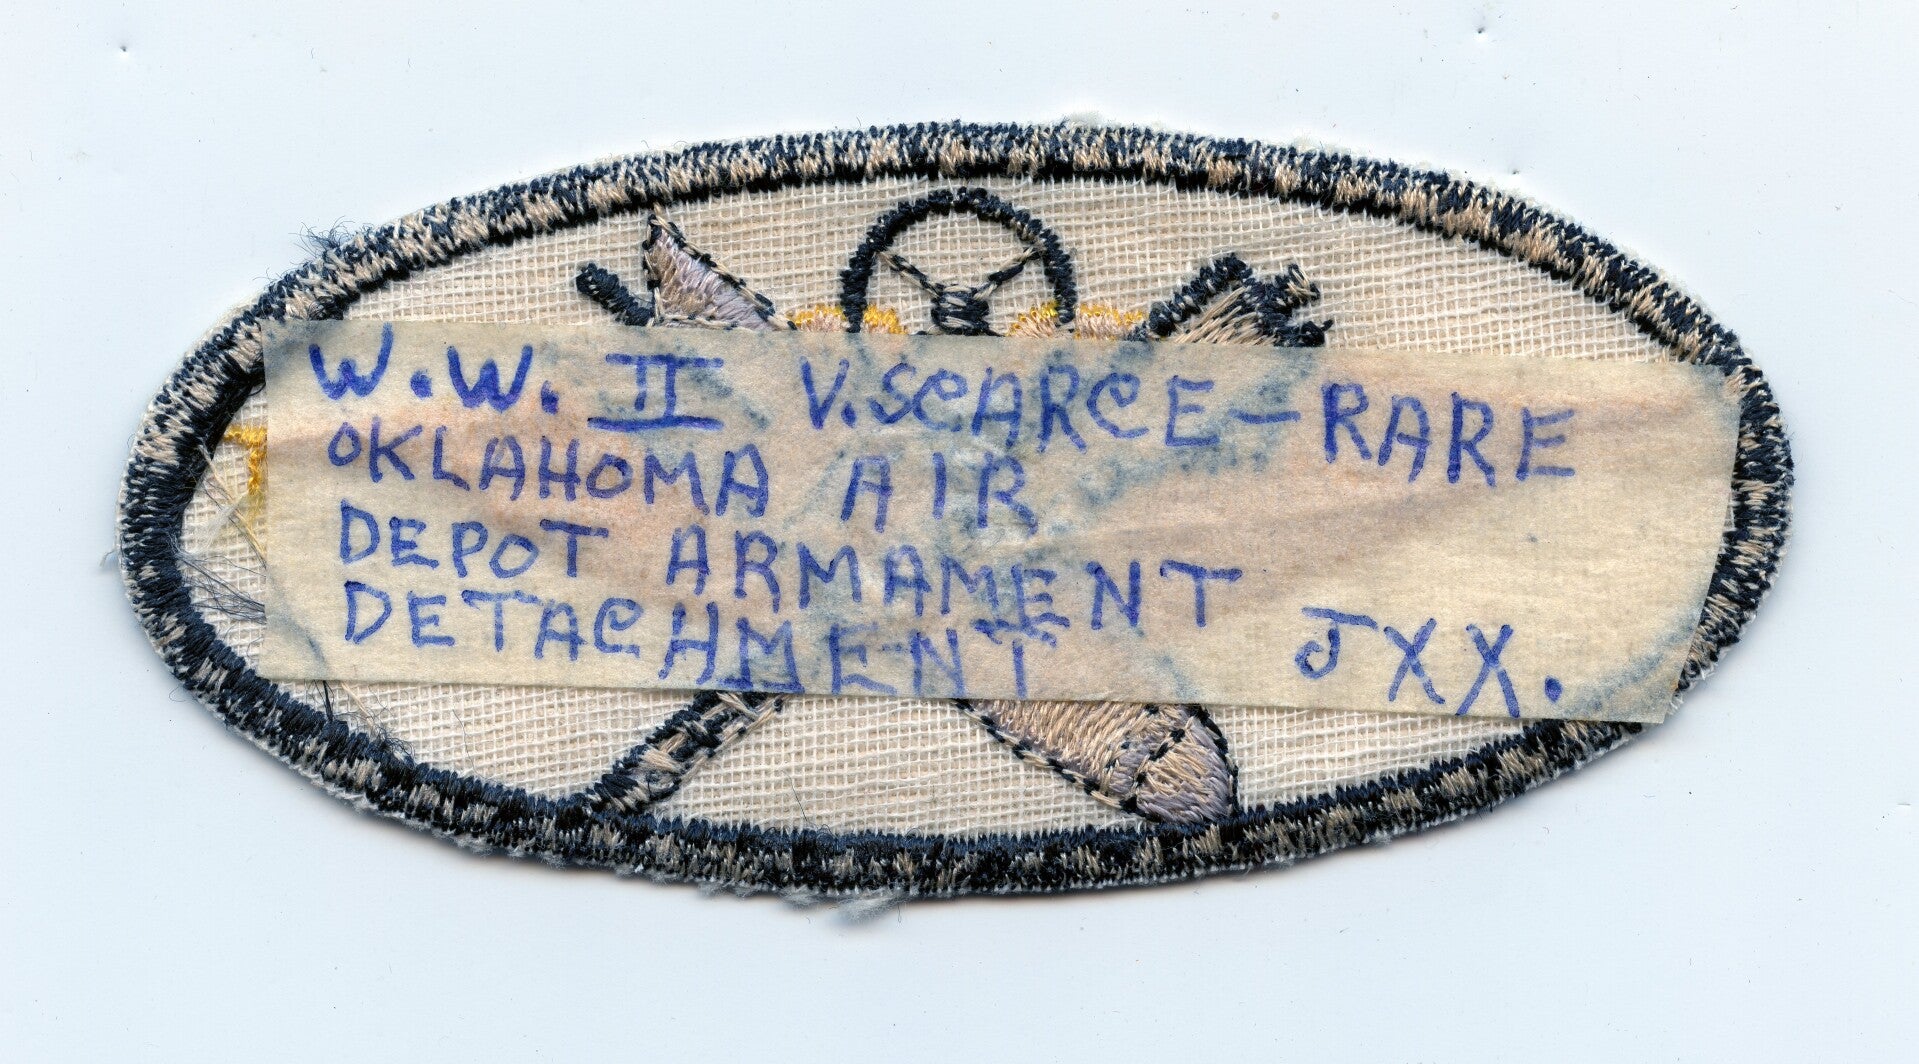 W.W. II V.SCARCE-RARE
OKLAHOMA AIR
DEPOT ARMAMENT
DETACHMENT JXX.